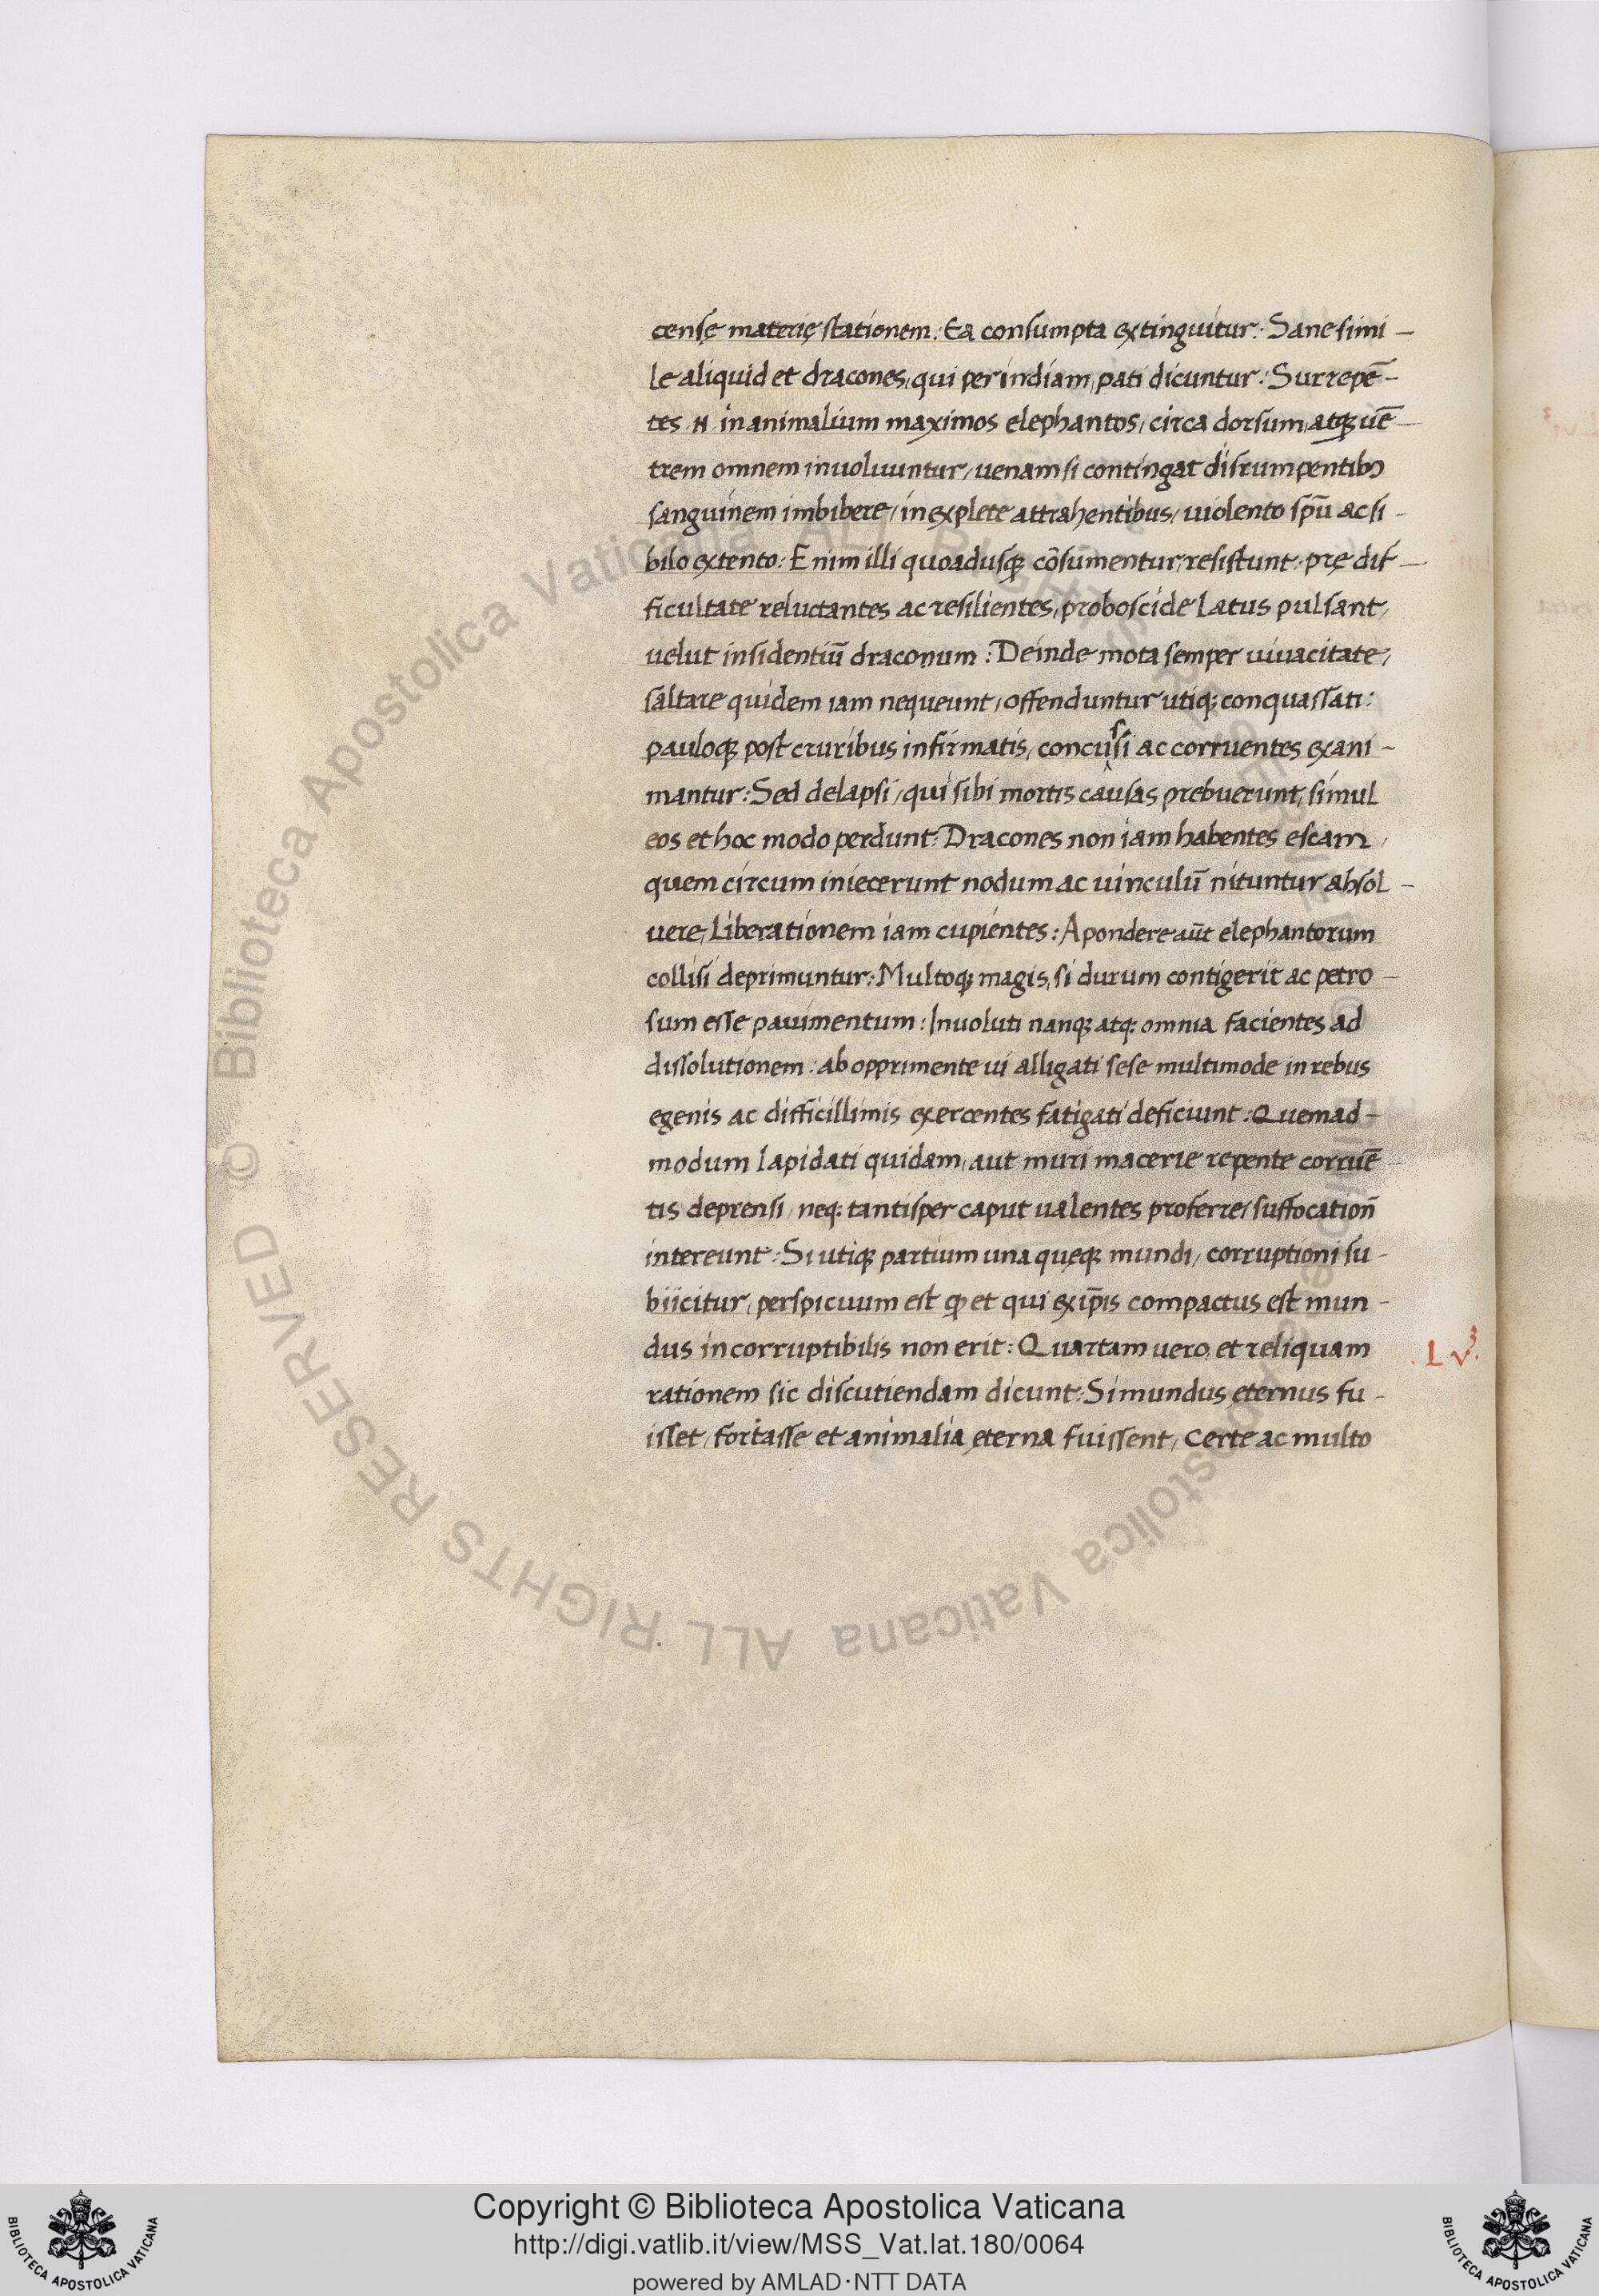 censę materię stationem: Ea consumpta extinguitur: Sane simi-
le aliquid et dracones, qui per indiam, pati dicuntur: Surrepē-
tes .N. in animalium maximos elephantos, circa dorsum, atqꝫ uē-
trem omnem inuoluuntur, uenam si contingat disrumpentibꝰ
sanguinem imbibere, inexplete attrahentibus, uiolento sp̄u ac si-
bilo extento: Enim illi quoadusqꝫ cōsumentur, resistunt: prę dif-
ficultate reluctantes ac resilientes, proboscide latus pulsant,
uelut insidentiū draconum: Deinde mota semper uiuacitate,
saltare quidem iam nequeunt, offenduntur utiqꝫ conquassati:
pauloqꝫ post cruribus infirmatis, concussi ac corruentes exani-
mantur: Sed delapsi, qui sibi mortis causas prebuerunt, simul
eos et hoc modo perdunt: Dracones non iam habentes escam,
quem circum iniecerunt nodum ac uinculū nituntur absol-
uere, Liberationem iam cupientes: A pondere aūt elephantorum
collisi deprimuntur: Multoqꝫ magis, si durum contigerit ac petro-
sum esse pauimentum: Inuoluti nanqꝫ atqꝫ omnia facientes ad
dissolutionem: ab opprimente ui alligati sese multimode in rebus
egenis ac difficillimis exercentes fatigati deficiunt: Quemad-
modum lapidati quidam, aut muri macerie repente corruē-
tis deprensi, neqꝫ tantisper caput ualentes proferre, suffocation̄
intereunt: Si utiqꝫ partium una quęqꝫ mundi, corruptioni su-
biicitur, perspicuum est ꝙ et qui ex ip̄is compactus est mun-
dus incorruptibilis non erit: Quartam uero et reliquam
.L v³.
rationem sic discutiendam dicunt: Si mundus ęternus fu-
isset, fortasse et animalia ęterna fuissent, certe ac multo
© Biblioteca Apostolica Vaticana ALL RIGHTS RESERVED
Copyright © Biblioteca Apostolica Vaticana
http://digi.vatlib.it/view/MSS_Vat.lat.180/0064
powered by AMLAD·NTT DATA
BIBLIOTECA APOSTOLICA VATICANA
BIBLIOTECA APOSTOLICA VATICANA